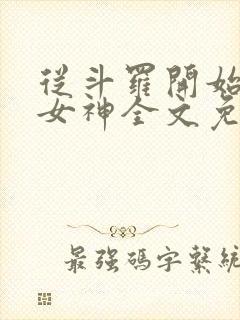 從斗羅開始
女神全文免
最強碼字繫統